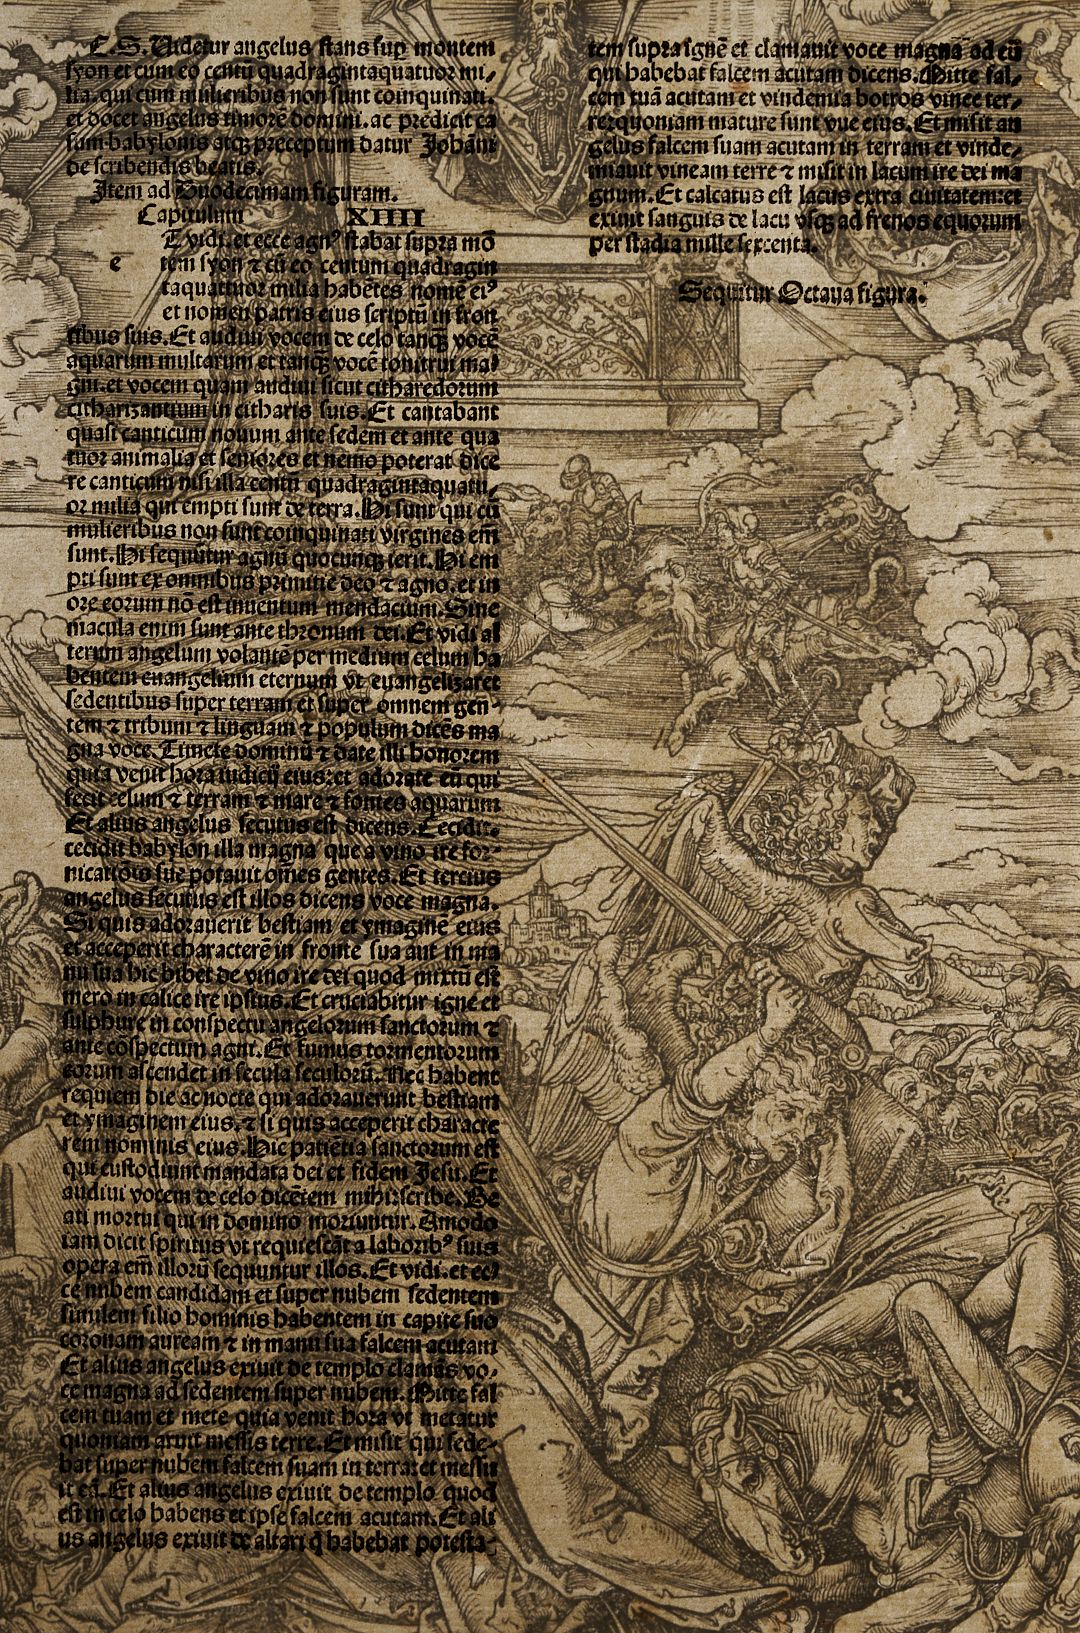 E.S. Uidetur angelus stans sup montem
syon et cum eo centū quadragintaquatuor mi⸗
lia. qui cum mulieribus non sunt coinquinati.
et docet angelus timorē domini. ac predicit ca
sum babylonis atq; preceptum datur Johāni
de scribendis beatis.
Item ad Duodecimam figuram.
Capitulum XIIII
e T vidi. et ecce agnꝰ stabat supra mō
tem syon ⁊ cū eo centum quadragin
taquattuor milia habētes nomē eiꝰ
et nomen patris eius scriptū in fron
tibus suis. Et audiui vocem de celo tanq̄; vocē
aquarum multarum et tanq̄; vocē tonitrui ma⸗
gni. et vocem quam audiui sicut citharedorum
citharizantium in citharis suis. Et cantabant
quasi canticum nouum ante sedem et ante qua
tuor animalia et seniores et nemo poterat dice
re canticum nisi illa centū quadragintaquatu⸗
or milia qui empti sunt de terra. Hi sunt qui cū
mulieribus non sunt coinquinati virgines em̄
sunt. Hi sequūtur agnū quocunq; ierit. Hi em
pti sunt ex omnibus primitie deo ⁊ agno. et in
ore eorum nō est inuentum mendacium. Sine
macula enim sunt ante thronum dei. Et vidi al
terum angelum volantē per medium celum ha
bentem euangelium eternum vt euangelizaret
sedentibus super terram et super omnem gen⸗
tem ⁊ tribum ⁊ linguam ⁊ populum dicēs ma
gna voce. Timete dominū ⁊ date illi honorem
quia venit hora iudicij eius: et adorate eū qui
fecit celum ⁊ terram ⁊ mare ⁊ fontes aquarum
Et alius angelus secutus est dicens. Cecidit.
cecidit babylon illa magna que a vino ire for⸗
nicatiōis sue potauit om̄es gentes. Et tercius
angelus secutus est illos dicens voce magna.
Si quis adorauerit bestiam et ymaginē eius
et acceperit characterē in fronte sua aut in ma
nu sua hic bibet de vino ire dei quod mixtū est
mero in calice ire ipsius. Et cruciabitur igne et
sulphure in conspectu angelorum sanctorum ⁊
ante cōspectum agni. Et fumus tormentorum
eorum ascendet in secula seculorū. Nec habent
requiem die ac nocte qui adorauerunt bestiam
et ymaginem eius. ⁊ si quis acceperit characte
rem nominis eius. Hic patiētia sanctorum est
qui custodiunt mandata dei et fidem Jesu. Et
audiui vocem de celo dicētem mihi: scribe. Be
ati mortui qui in domino moriuntur. Amodo
iam dicit spiritus vt requiescāt a laboribꝰ suis
opera em̄ illorū sequuntur illos. Et vidi. et ec⸗
ce nubem candidam et super nubem sedentem
similem filio hominis habentem in capite suo
coronam auream ⁊ in manu sua falcem acutam
Et alius angelus exiuit de templo clamās vo⸗
ce magna ad sedentem super nubem. Mitte fal
cem tuam et mete quia venit hora vt metatur
quoniam aruit messis terre. Et misit qui sede⸗
bat super nubem falcem suam in terra: et messu
it eā. Et alius angelus exiuit de templo quod
est in celo habens et ipse falcem acutam. Et ali
us angelus exiuit de altari q̄ habebat potesta⸗
tem supra ignē et clamauit voce magna ad eū
qui habebat falcem acutam dicens. Mitte fal⸗
cem tuā acutam et vindemia botros vinee ter⸗
re: quoniam mature sunt vue eius. Et misit an
gelus falcem suam acutam in terram et vinde⸗
miauit vineam terre ⁊ misit in lacum ire dei ma
gnum. Et calcatus est lacus extra ciuitatem: et
exiuit sanguis de lacu vsq; ad frenos equorum
per stadia mille sexcenta.
Sequitur Octaua figura.